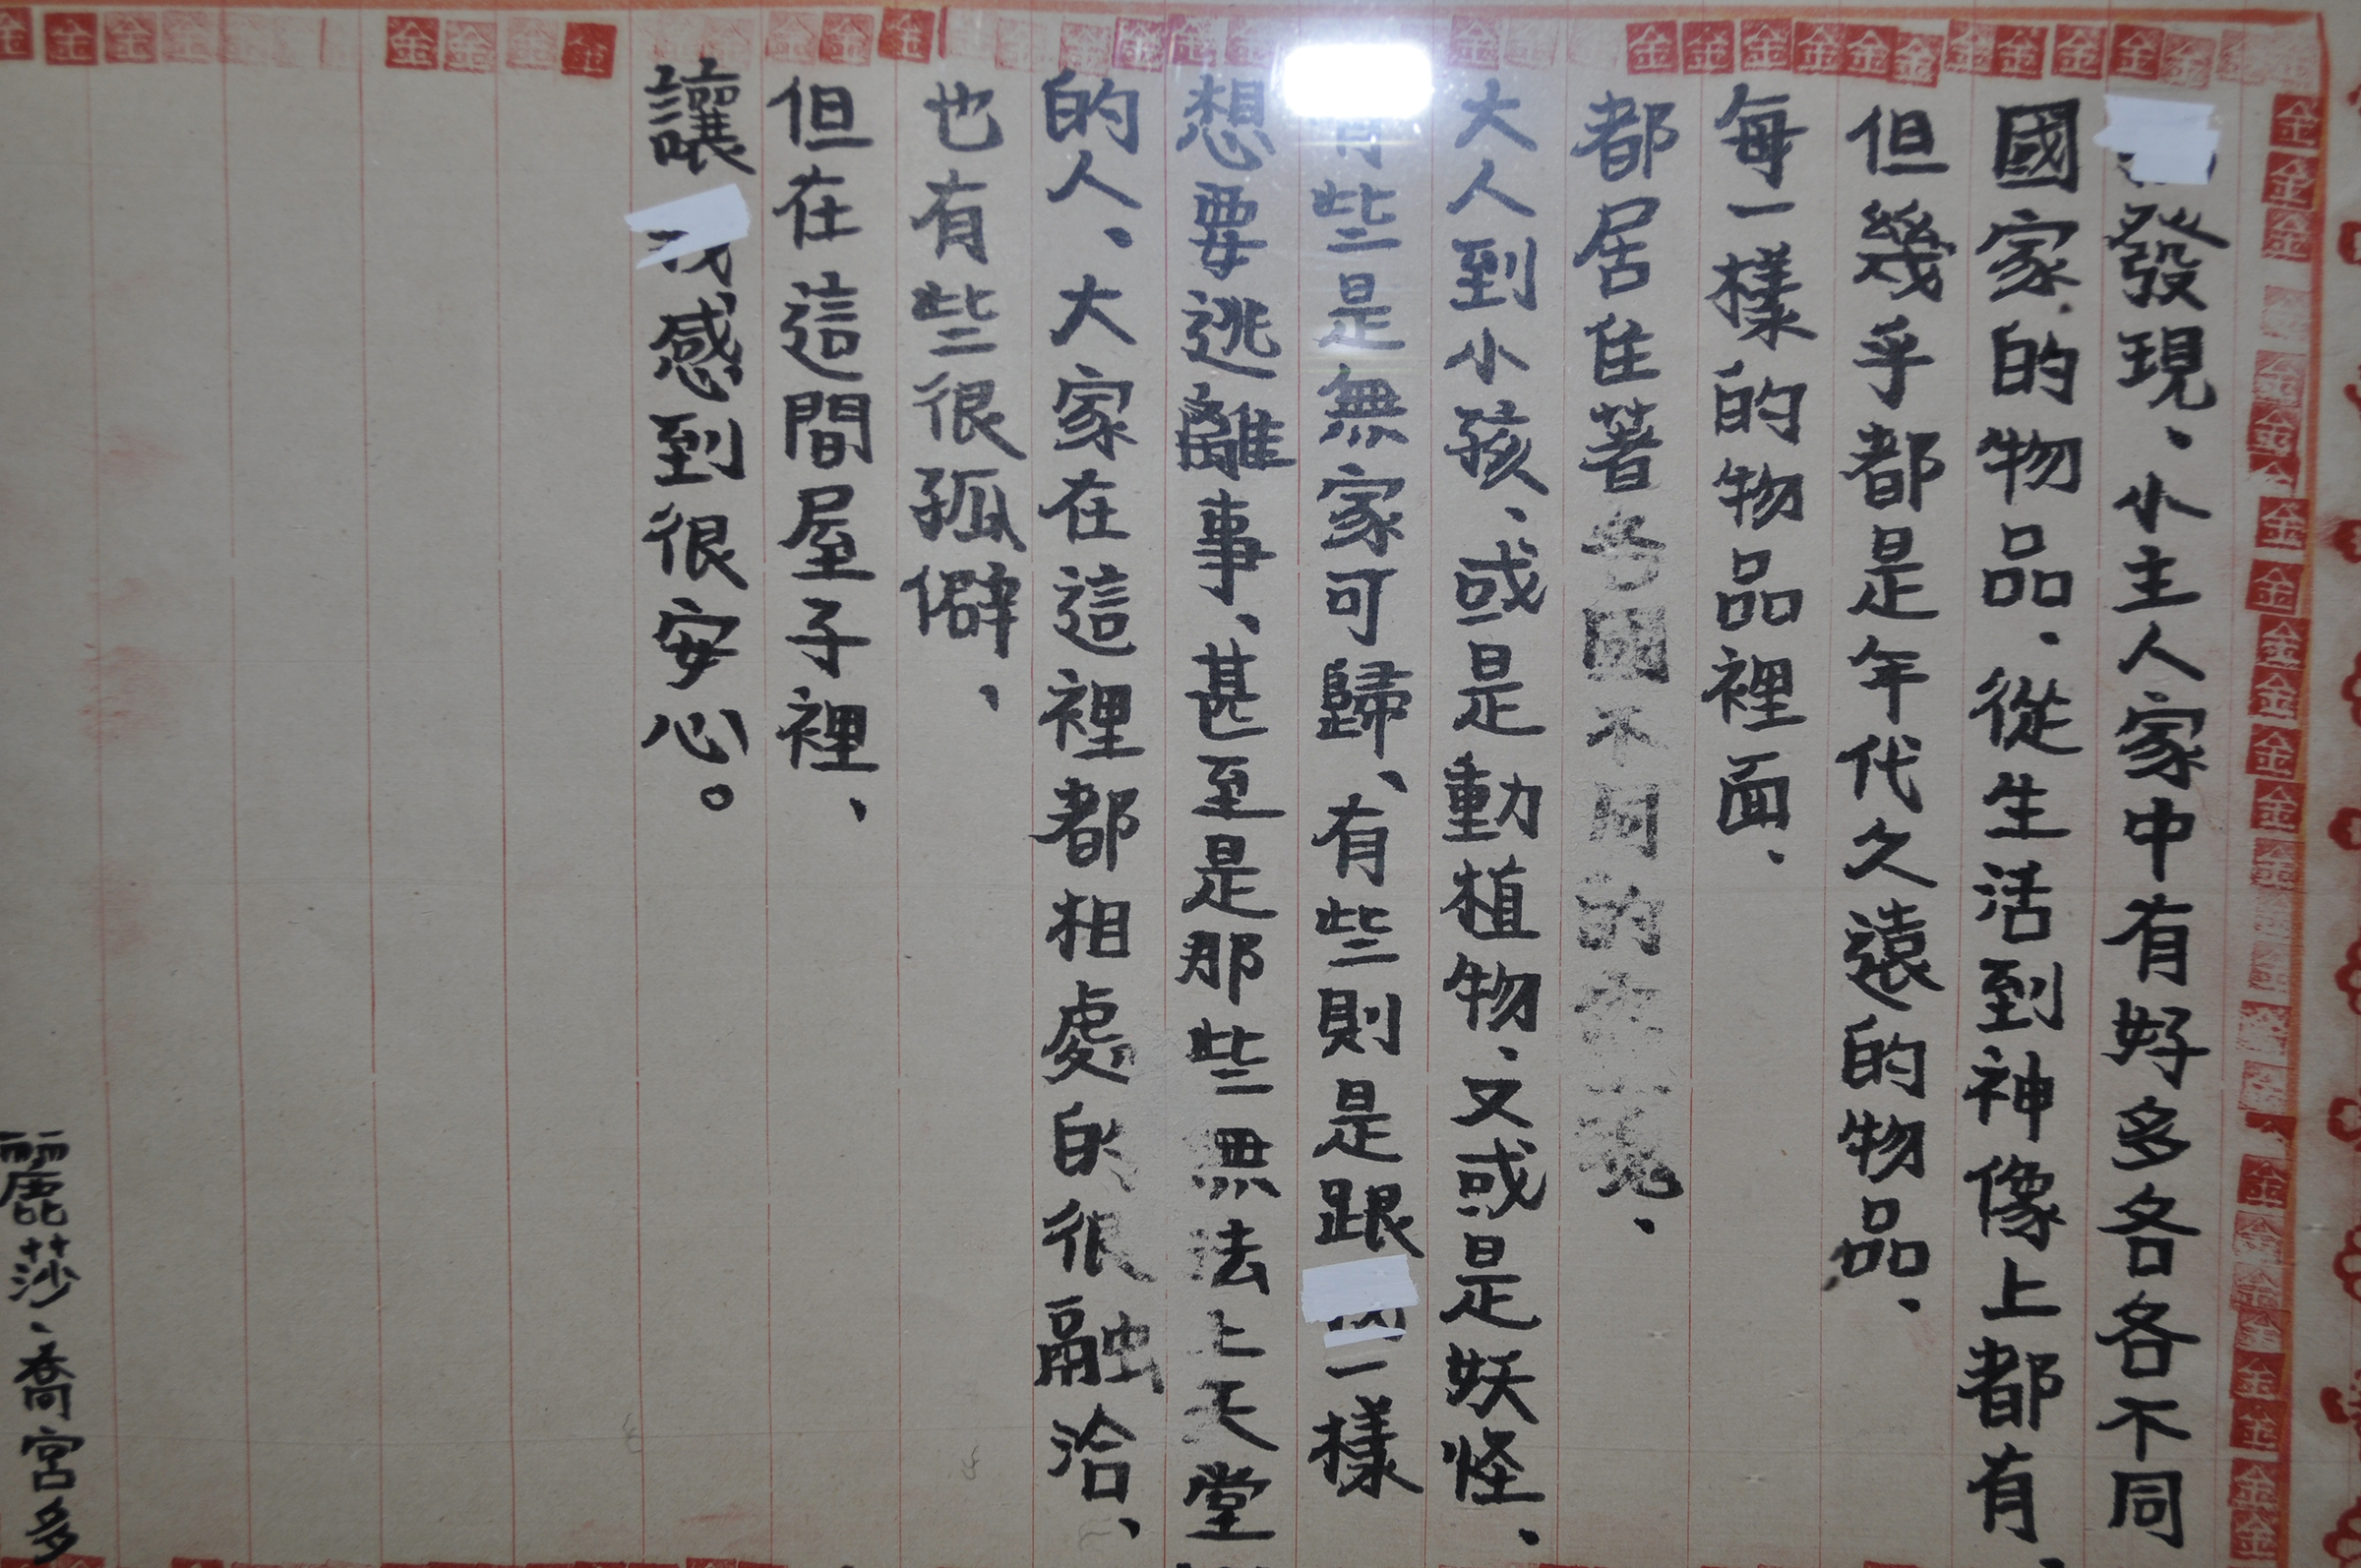 發現、小主人家中有好多各各不同
國家的物品、從生活到神像上都有、
但幾乎都是年代久遠的物品、
每一樣的物品裡面、
都居住著各國不同的
大人到小孩、或是動植物、又或是妖怪、
有些是無家可歸、有些則是跟一樣
想要逃離事、甚至是那些無法上天堂
的人、大家在這裡都相處的很融洽、
也有些很孤僻、
但在這間屋子裡、
讓我感到很安心。
麗莎、喬宮多